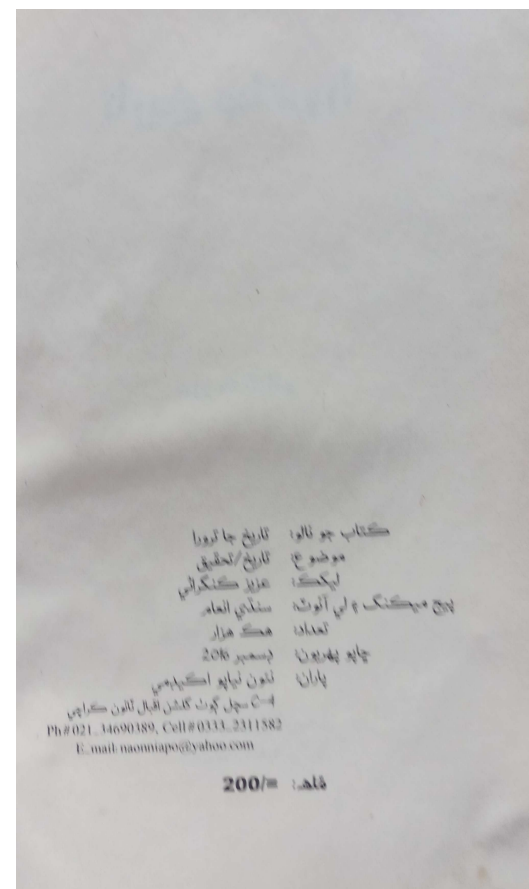 ڪتاب جو نالو: تاريخ جا ترورا
موضوع: تاريخ/تحقيق
ليکڪ: عزيز ڪنگراڻي
پيج ميڪنگ ۽ لي آئوٽ: سنڌي انعام
تعداد: هڪ هزار
ڇاپو پهريون: ڊسمبر 2016
پاران: نئون نياپو اڪيڊمي
C-4 سچل ڳوٺ گلشن اقبال ٽائون ڪراچي
Ph#021..34690389, Cell#0333..2311582
E..mail: naonniapo@yahoo.com
200/=